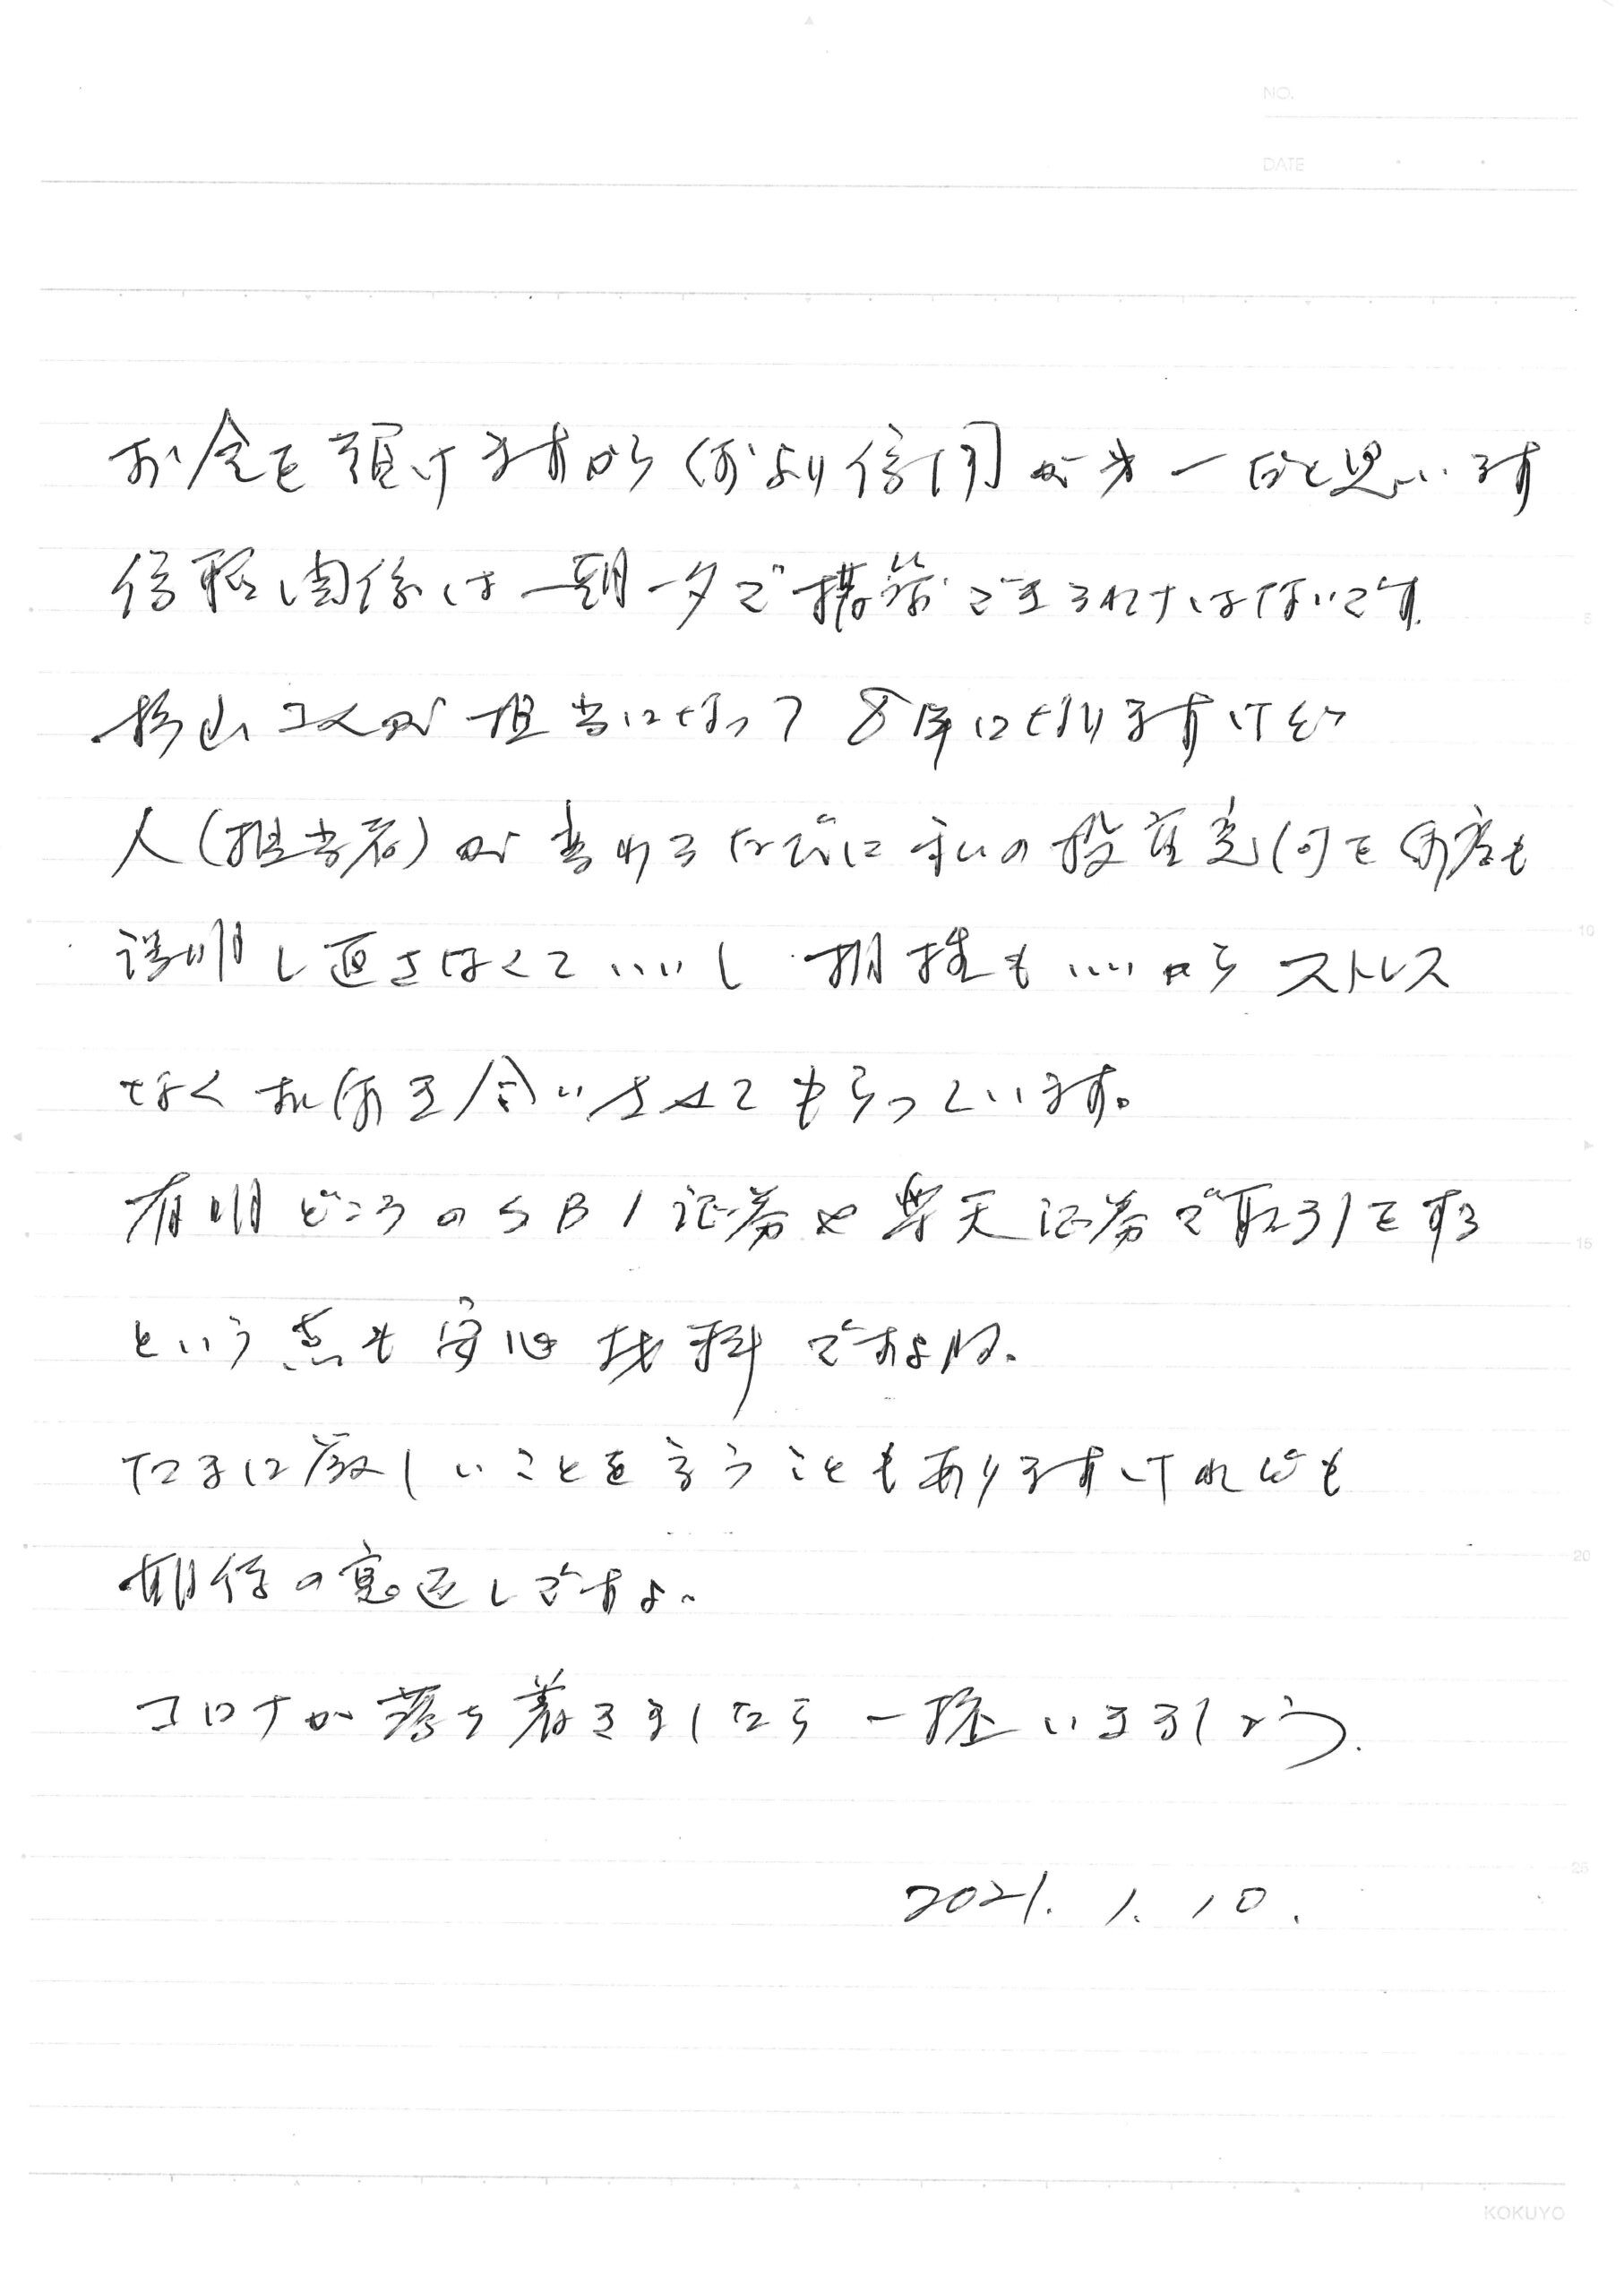 NO.
DATE
お金を預けますから何より信用が才一だと思います
信頼関係は一朝一夕で構築できるれはないです
杉山さんが担当になって8年になりますけど
人(担当者)が変わるたびに私の投資意向を何度も
説明し直さなくていいし 相性もいいから ストレス
なくお付き合いさせてもらっています。
有明どころのSBI証券や楽天証券で取引をする
という点も安心材料ですよね。
たまに厳しいことを言うこともありますけれども
期待の裏返しですよ。
コロナが落ち着きましたら一杯いきましょう。
2021.1.10.
5
10
15
20
25
KOKUYO